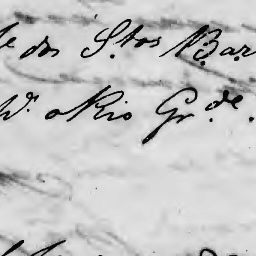 e dos S.tos Bar
o Rio Gr.de.